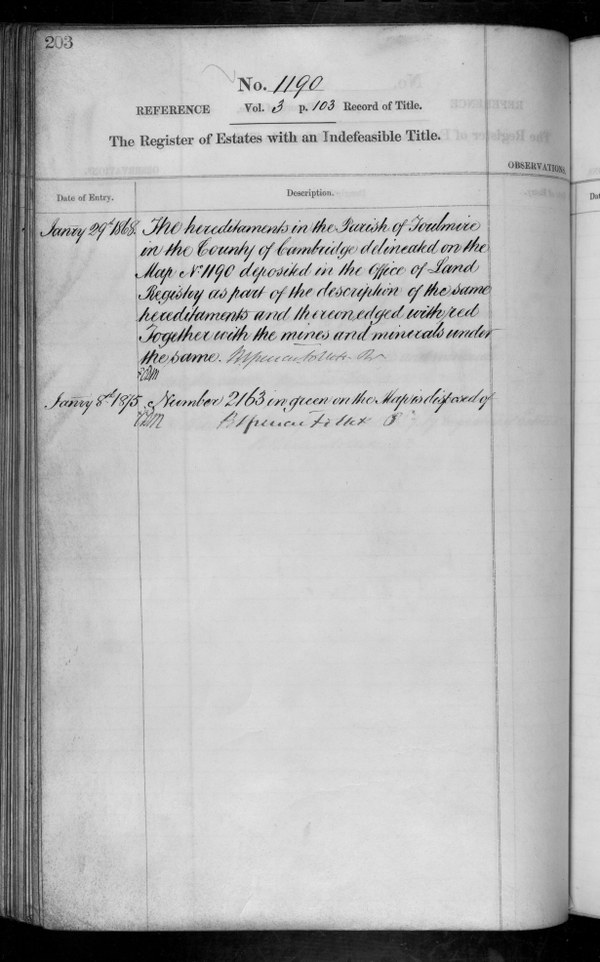 203
No. 1190
REFERENCE Vol. 3 p. 103 Record of Title.
The Register of Estates with an Indefeasible Title.
OBSERVATIONS.
Date of Entry. Description.
Janry 29th 1868. The hereditaments in the Parish of Foulmire
in the County of Cambridge delineated on the
Map No. 1190 deposited in the Office of Land
Registry as part of the description of the same
hereditaments and thereon edged with red
Together with the mines and minerals under
the same.
Janry 8th 1875. Number 2163 in green on the Map is disposed of